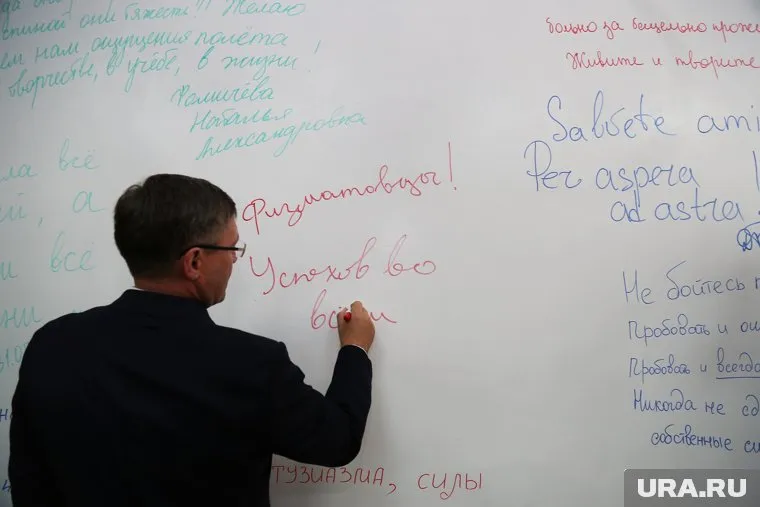 спиной они тяжести!! Желаю
ем нам ощущения полёта
творчестве, в учёбе, в жизни!
Фомичёва
Наталья
Александровна
ла всё
ей, а
и всё
ни
Физматовцы!
Успехов во
всём
ТУЗИАЗМА, СИЛЫ
больно за бесцельно прож
Живите и творите
Salvete ami
Per aspera
ad astra!
Не бойтесь
Пробовать и ош
Пробовать и всегда
Никогда не сд
собственные си
URA.RU